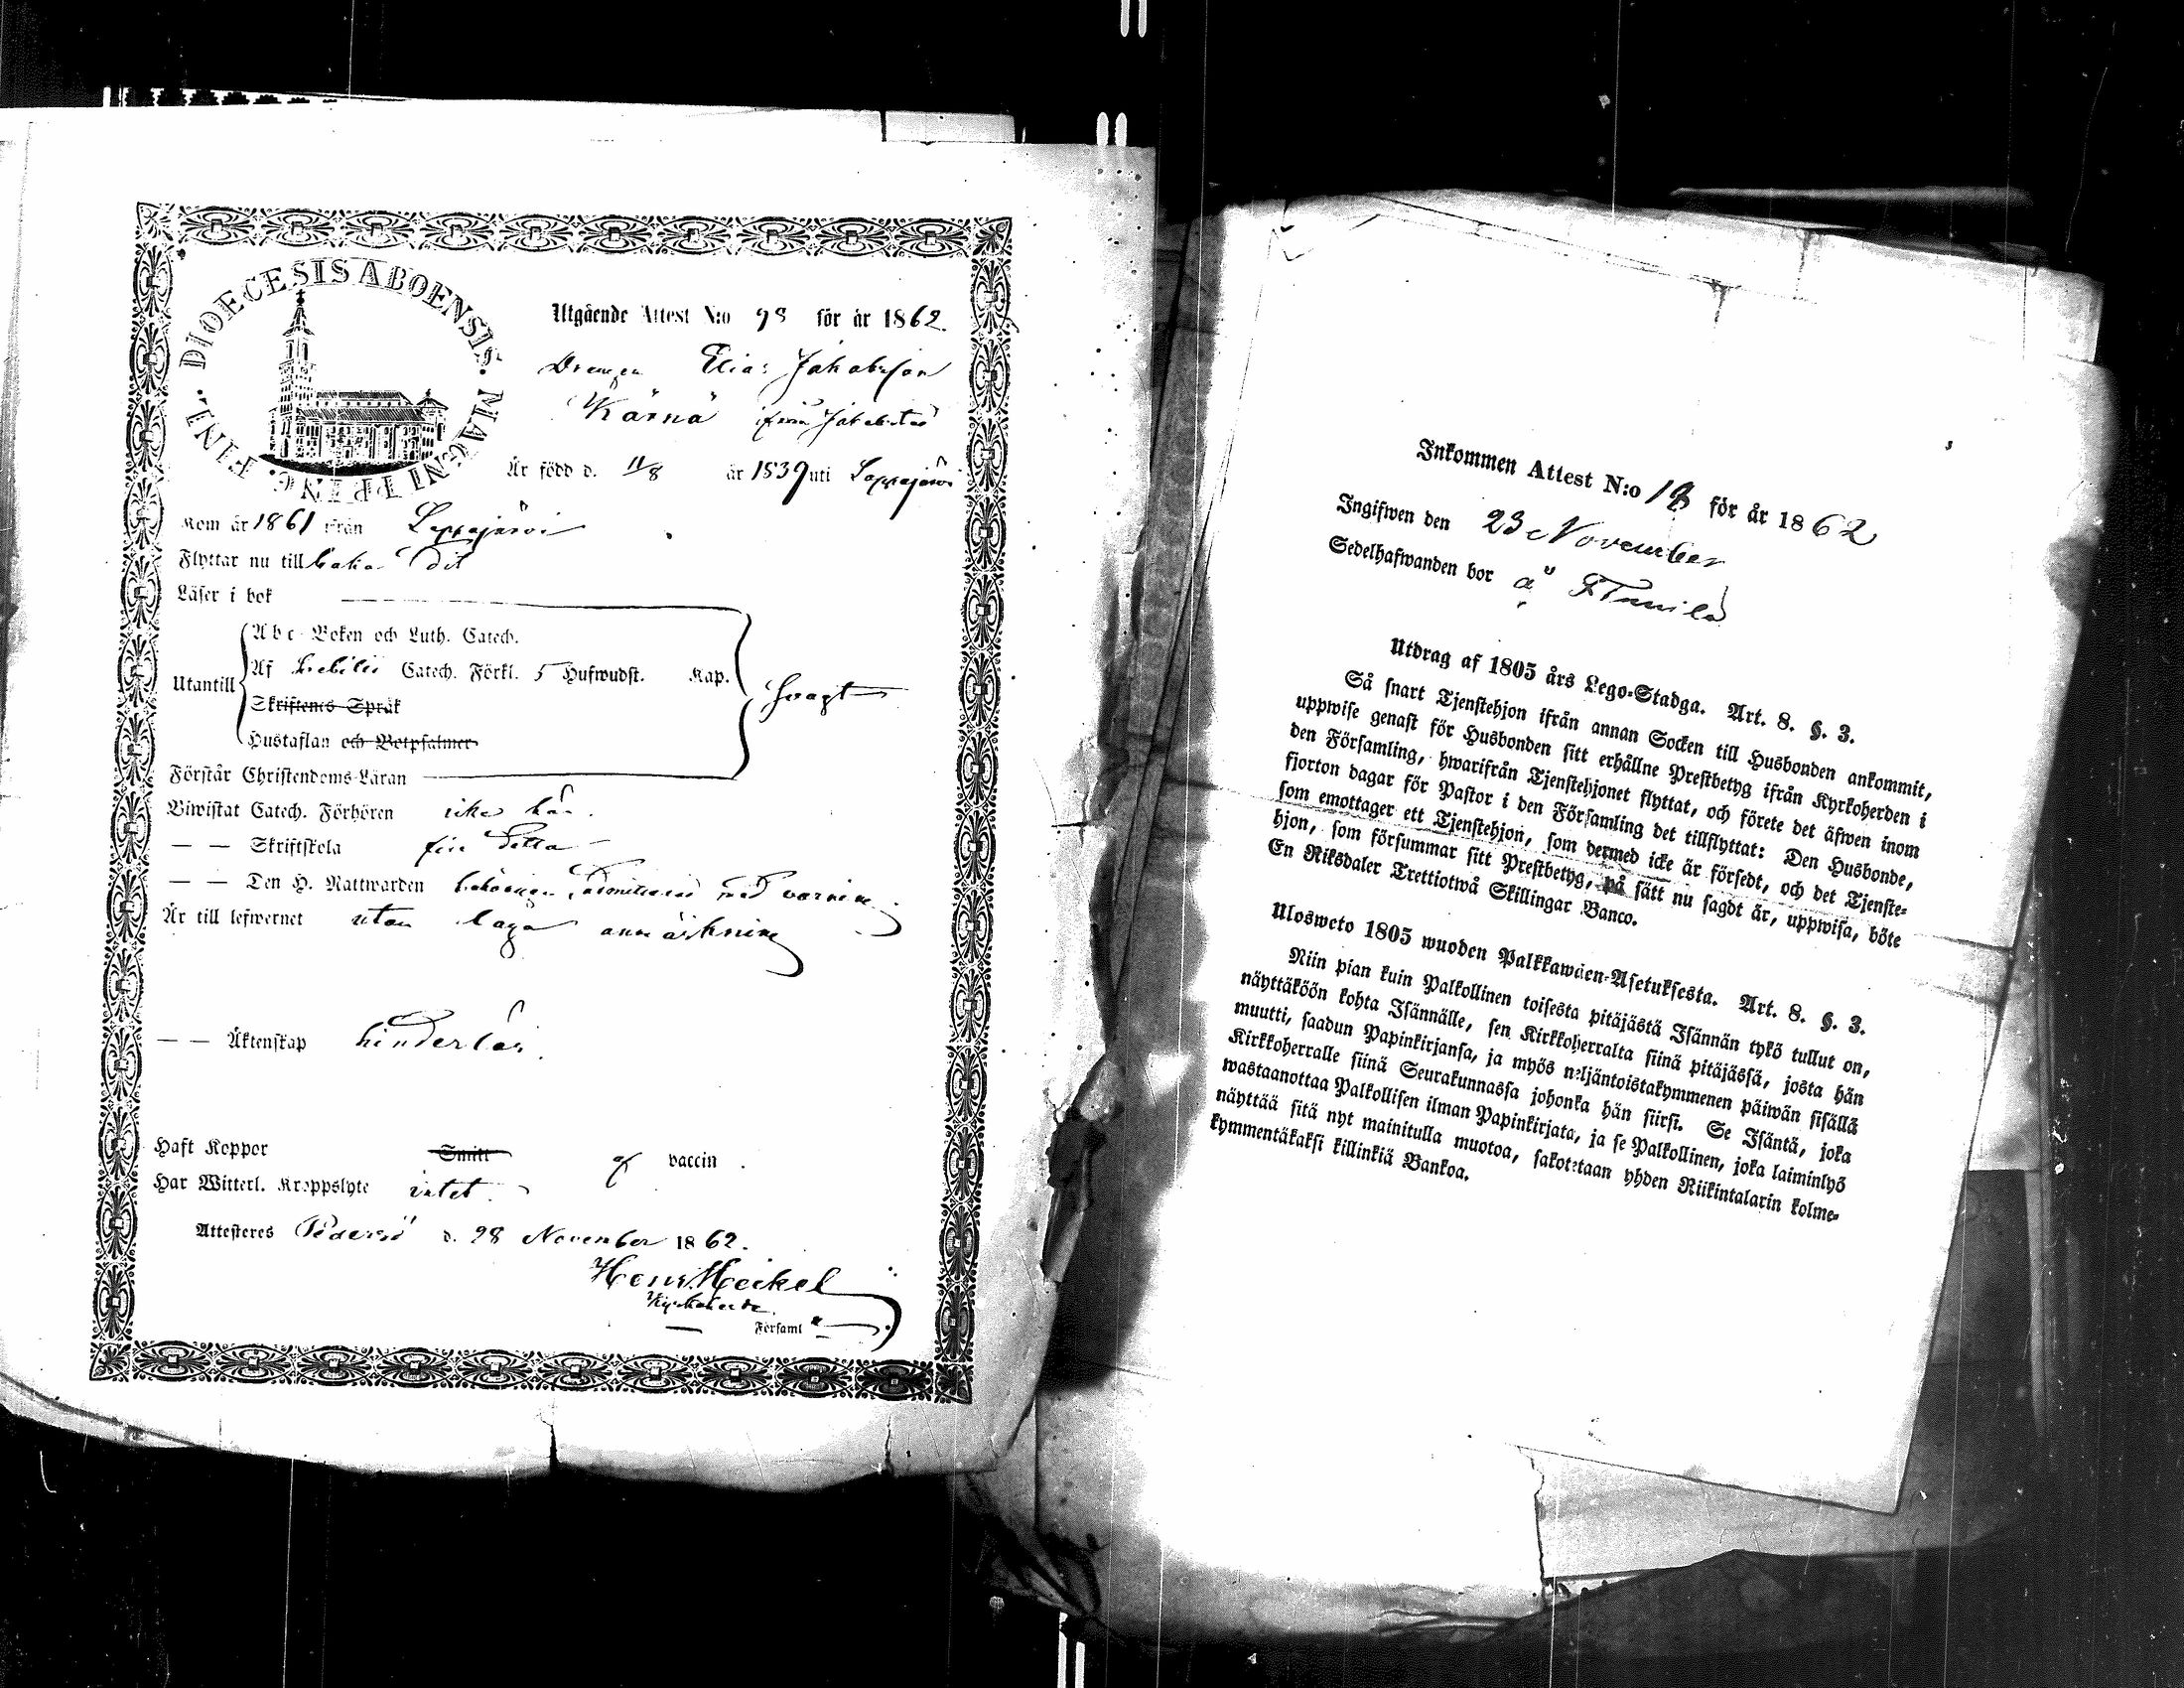 DIOECESIS ABOENSIS. MAGNI PRINC. FINL.
Utgående Attest N:o 98 för år 1862.
Drengen Elias Jakobsson
Kärnä ifrån Jakobstad
Är född d. 11/8 år 1839 uti Lappajärvi
Kom år 1861 från Lappajärvi
Flyttar nu till baka dit
Läser i bok
Utantill
Abc-Boken och Luth. Catech.
Af Svebilii Catech. Förkl. 5 Hufwudst. Kap.
Skriftenes Språk
Hustaflan och Botpsalmer
svagt
Förstår Christendoms-Läran
Biwistat Catech. Förhören icke här.
— — Skriftskola före detta
— — Den H. Nattwarden med varning
Är till lefwernet utan laga anmärkning
— — Äktenskap hinderlös.
Haft Koppor Smitt af vaccin.
Har Witterl. Kroppslyte intet.
Attesteres Pedersö d. 28 November 1862.
Henr. Heikel
Kyrkoherde.
Församl
Inkommen Attest N:o 18 för år 1862
Ingifwen den 23 November
Sedelhafwanden bor å
Utdrag af 1805 års Lego-Stadga. Art. 8. §. 3.
Så snart Tjenstehjon ifrån annan Socken till Husbonden ankommit,
uppwise genast för Husbonden sitt erhållne Prestbetyg ifrån Kyrkoherden i
den Församling, hwarifrån Tjenstehjonet flyttat, och förete det äfwen inom
fjorton dagar för Pastor i den Församling det tillflyttat: Den Husbonde,
som emottager ett Tjenstehjon, som dermed icke är försedt, och det Tjenste-
hjon, som försummar sitt Prestbetyg, på sätt nu sagdt är, uppwisa, böte
En Riksdaler Trettiotwå Skillingar Banco.
Ulosweto 1805 wuoden Palkkawäen-Asetuksesta. Art. 8. §. 3.
Niin pian kuin Palkollinen toisesta pitäjästä Isännän tykö tullut on,
näyttäköön kohta Isännälle, sen Kirkkoherralta siinä pitäjässä, josta hän
muutti, saadun Papinkirjansa, ja myös neljäntoistakymmenen päiwän sisällä
Kirkkoherralle siinä Seurakunnassa johonka hän siirsi. Se Isäntä, joka
wastaanottaa Palkollisen ilman Papinkirjata, ja se Palkollinen, joka laiminlyö
näyttää sitä nyt mainitulla muotoa, sakotetaan yhden Riikintalarin kolme-
kymmentäkaksi killinkiä Bankoa.